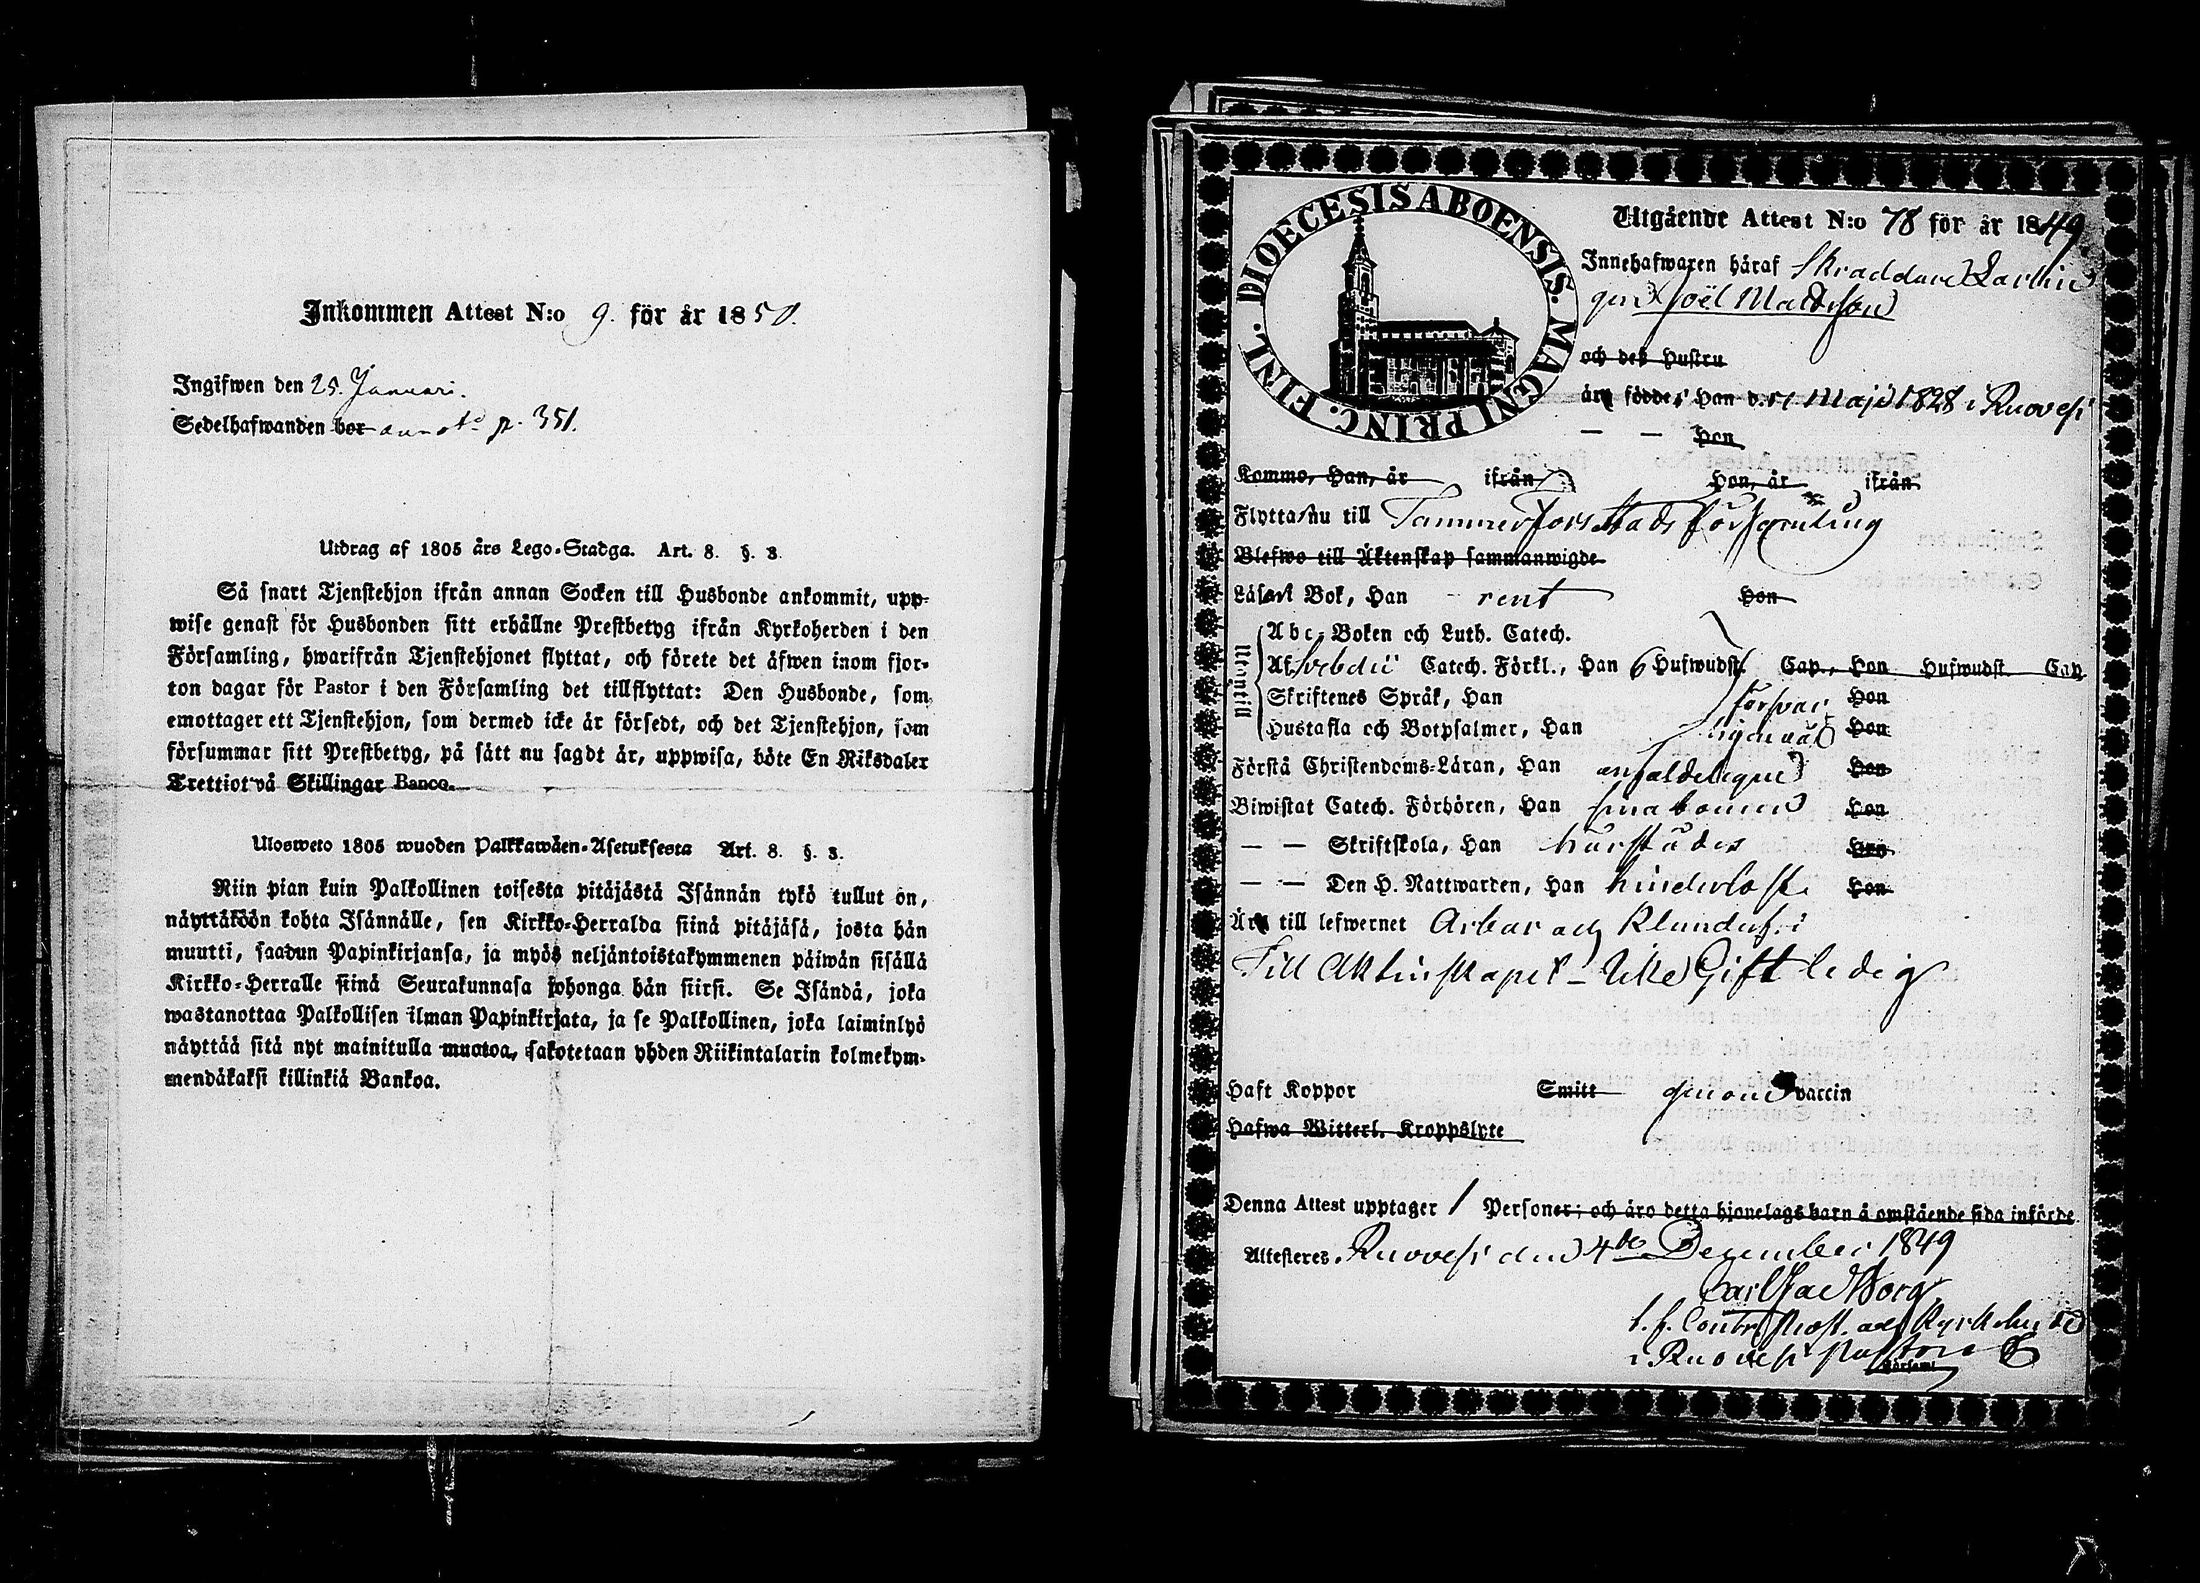 Inkommen Attest N:o 9. för år 1850.
Ingifwen den 25. Januari.
Sedelhafwanden bor annot. p. 351.
Utdrag af 1805 års Lego-Stadga. Art. 8. §. 3.
Så snart Tjenstehjon ifrån annan Socken till Husbonde ankommit, upp-
wise genast för Husbonden sitt erhållne Prestbetyg ifrån Kyrkoherden i den
Församling, hwarifrån Tjenstehjonet flyttat, och förete det äfwen inom fjor-
ton dagar för Pastor i den Församling det tillflyttat: Den Husbonde, som
emottager ett Tjenstehjon, som dermed icke är försedt, och det Tjenstehjon, som
försummar sitt Prestbetyg, på sätt nu sagdt är, uppwisa, böte En Riksdaler
Trettiotvå Skillingar Banco.
Ulosweto 1805 wuoden Palkkawäen-Asetuksesta Art. 8. §. 3.
Niin pian kuin Palkollinen toisesta pitäjästä Isännän tykö tullut on,
näyttäköön kohta Isännälle, sen Kirkko-Herralda siinä pitäjäsä, josta hän
muutti, saadun Papinkirjansa, ja myös neljäntoistakymmenen päiwän sisällä
Kirkko-Herralle siinä Seurakunnasa johonga hän siirsi. Se Isändä, joka
wastanottaa Palkollisen ilman Papinkirjata, ja se Palkollinen, joka laiminlyö
näyttää sitä nyt mainitulla muotoa, sakotetaan yhden Riikintalarin kolmekym-
mendäkaksi killinkiä Bankoa.
DIOECESIS ABOENSIS. MAGNI PRINC. FINL.
Utgående Attest N:o 78 för år 1849.
Innehafwaren häraf Skraddare Lärlin
gen Joël Mattsson
och des Hustru
äro födde, Han d. 11 Maji 1828 i Ruovesi
— — Hon
Kommo, Han, år ifrån Hon, år ifrån
Flytta nu till Tammerfors Stads församling
Blefwo till Äktenskap sammanwigde
Läsa i Bok, Han rent Hon
Utantill
Abc-Boken och Luth. Catech.
Af Svebelii Catech. Förkl., Han 6 Hufwudst. Cap., Hon Hufwudst. Cap
Skriftenes Språk, Han försvar Hon
Hustafla och Botpsalmer, Han ligen väl Hon
Förstå Christendoms-Läran, Han enfaldeligen Hon
Biwistat Catech. Förhören, Han Hon
— — Skriftskola, Han Hon
— — Den H. Nattwarden, Han hinderlöst Hon
Äro till lefwernet Arbar och
Till Äktenskapet – Icke Gift ledig
Haft Koppor Smitt genom vaccin
Hafwa Witterl. Kroppslyte
Denna Attest upptager 1 Personer; och äro detta hjonelags barn å omstående sida införde.
Attesteres. Ruovesi den 4de December 1849
Carl
t. f. Contr. Prost. och Kyrkoherde
i Ruovesi Pastorat
Församl.